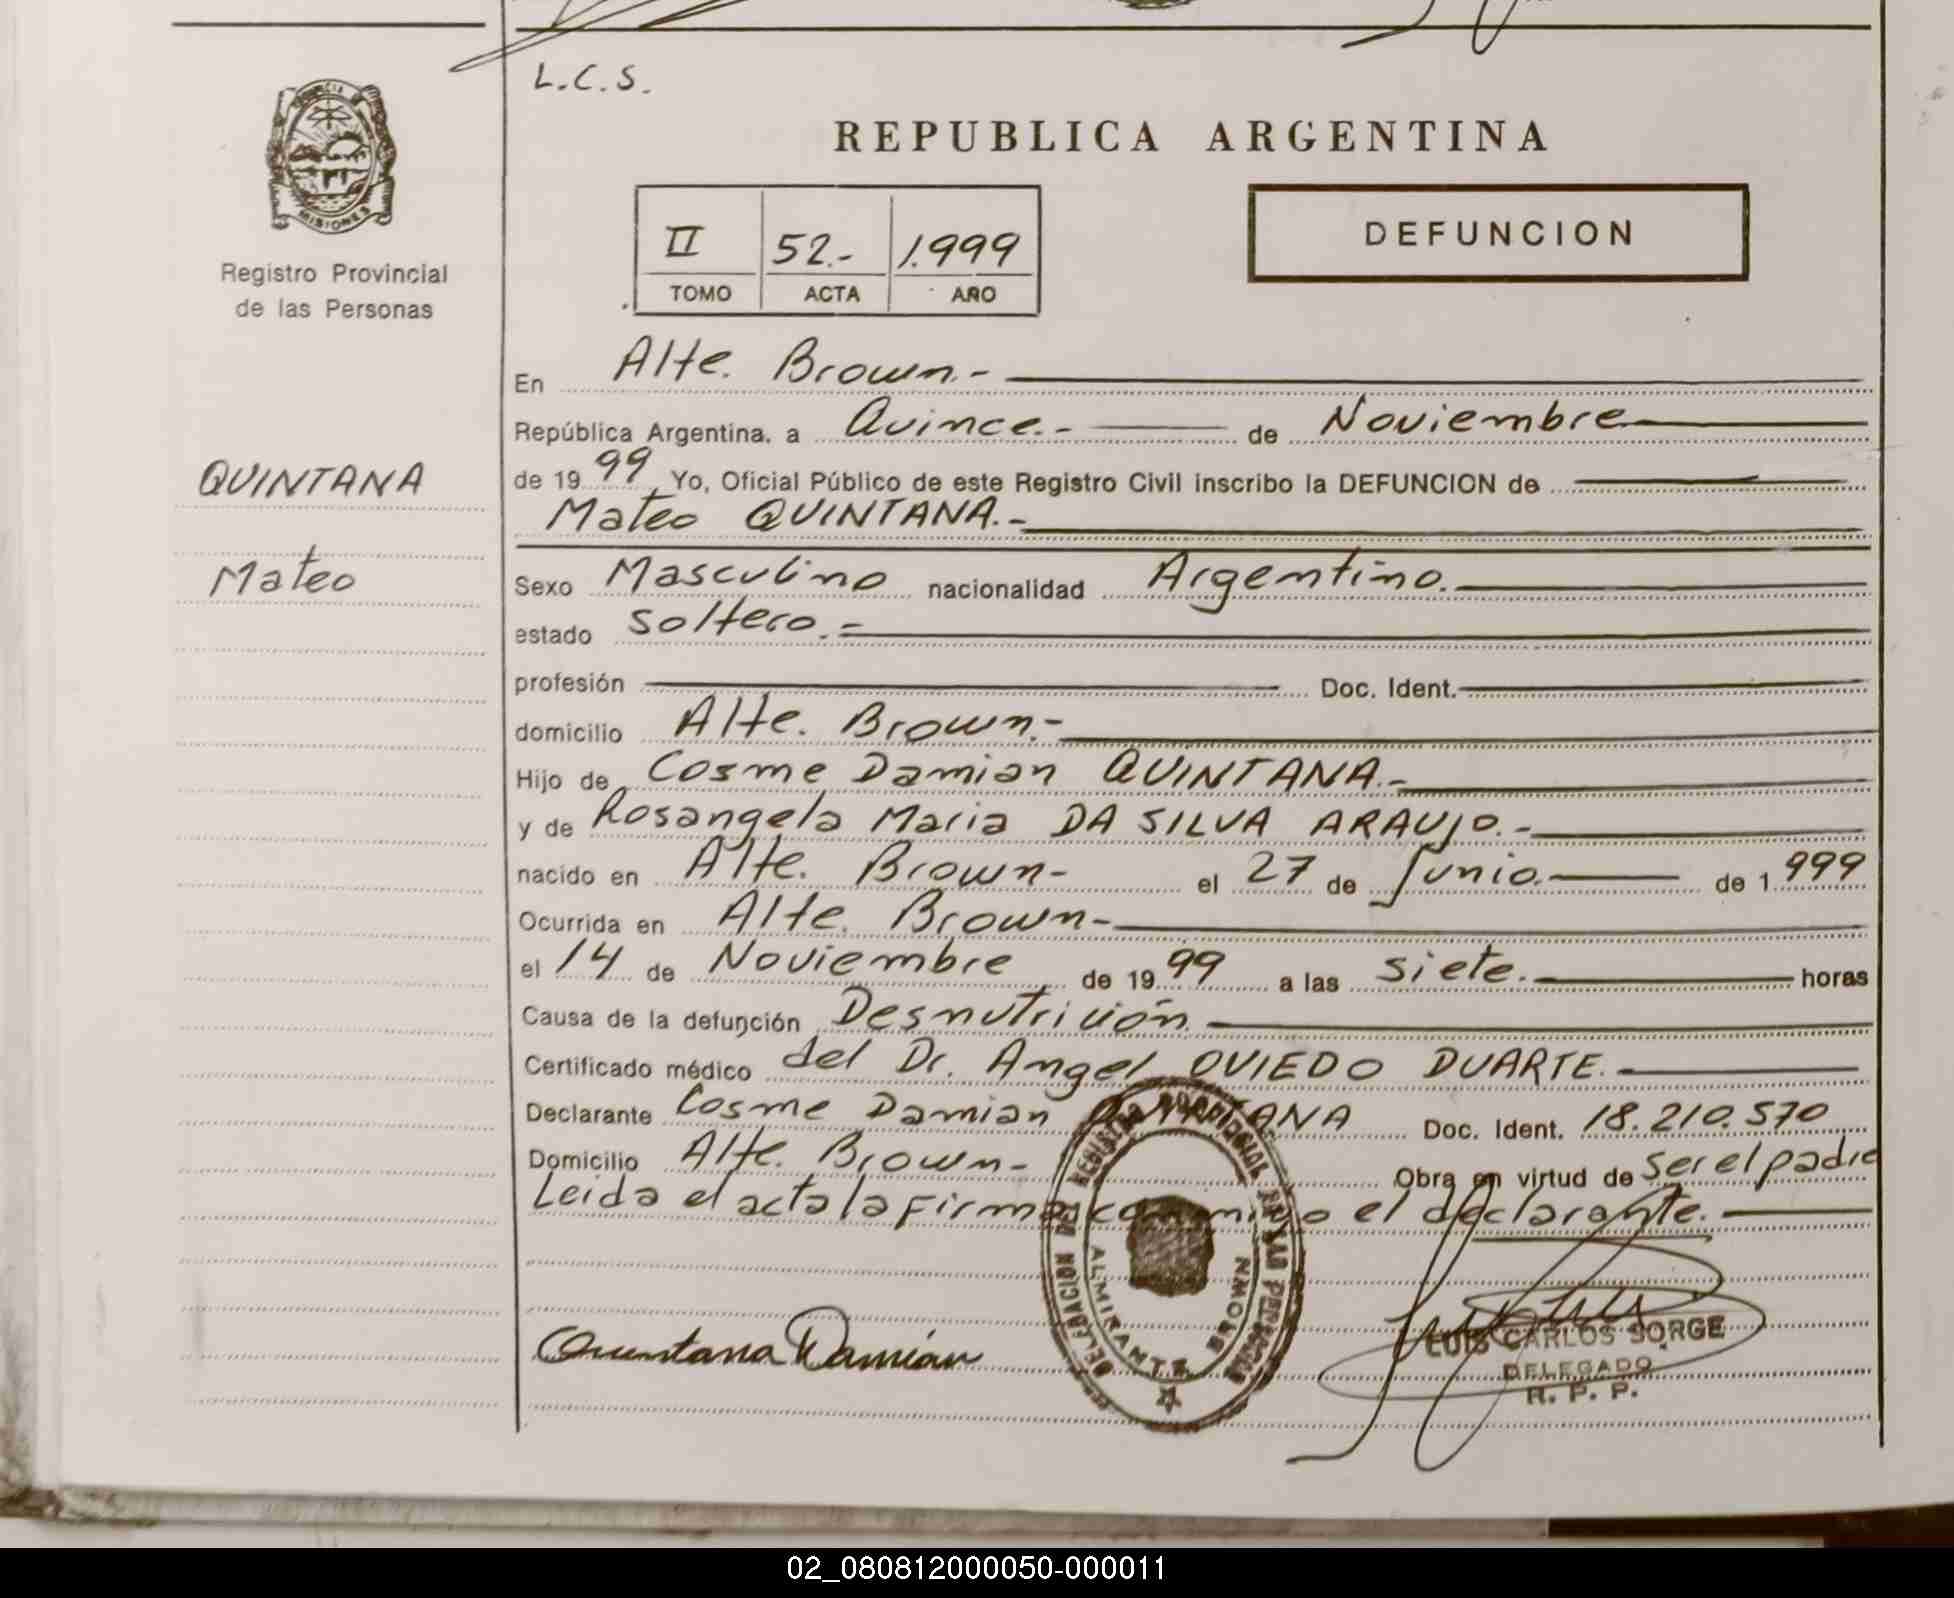 L.C.S.
REPUBLICA ARGENTINA
MISIONES
Registro Provincial
de las Personas
II 52.- 1.999
TOMO ACTA AÑO
DEFUNCION
En Alte. Brown.-
República Argentina, a Quince.- de Noviembre
de 1999 Yo, Oficial Público de este Registro Civil inscribo la DEFUNCION de
QUINTANA
Mateo QUINTANA.-
Mateo
Sexo Masculino nacionalidad Argentino.
estado soltero.-
profesión Doc. Ident.
domicilio Alte. Brown.-
Hijo de Cosme Damian QUINTANA.-
y de Rosangela Maria DA SILVA ARAUJO.-
nacido en Alte. Brown- el 27 de Junio. de 1.999
Ocurrida en Alte. Brown-
el 14 de Noviembre de 1999 a las siete. horas
Causa de la defunción Desnutrición.
Certificado médico del Dr. Angel OVIEDO DUARTE.
Declarante Cosme Damian QUINTANA Doc. Ident. 18.210.570
Domicilio Alte. Brown- Obra en virtud de ser el padre
Leida el acta la firma conmigo el declarante.
DELEGACION DEL REGISTRO PROVINCIAL DE LAS PERSONAS
ALMIRANTE BROWN
Quintana Damián
LUIS CARLOS SORGE
DELEGADO
R. P. P.
02_080812000050-000011